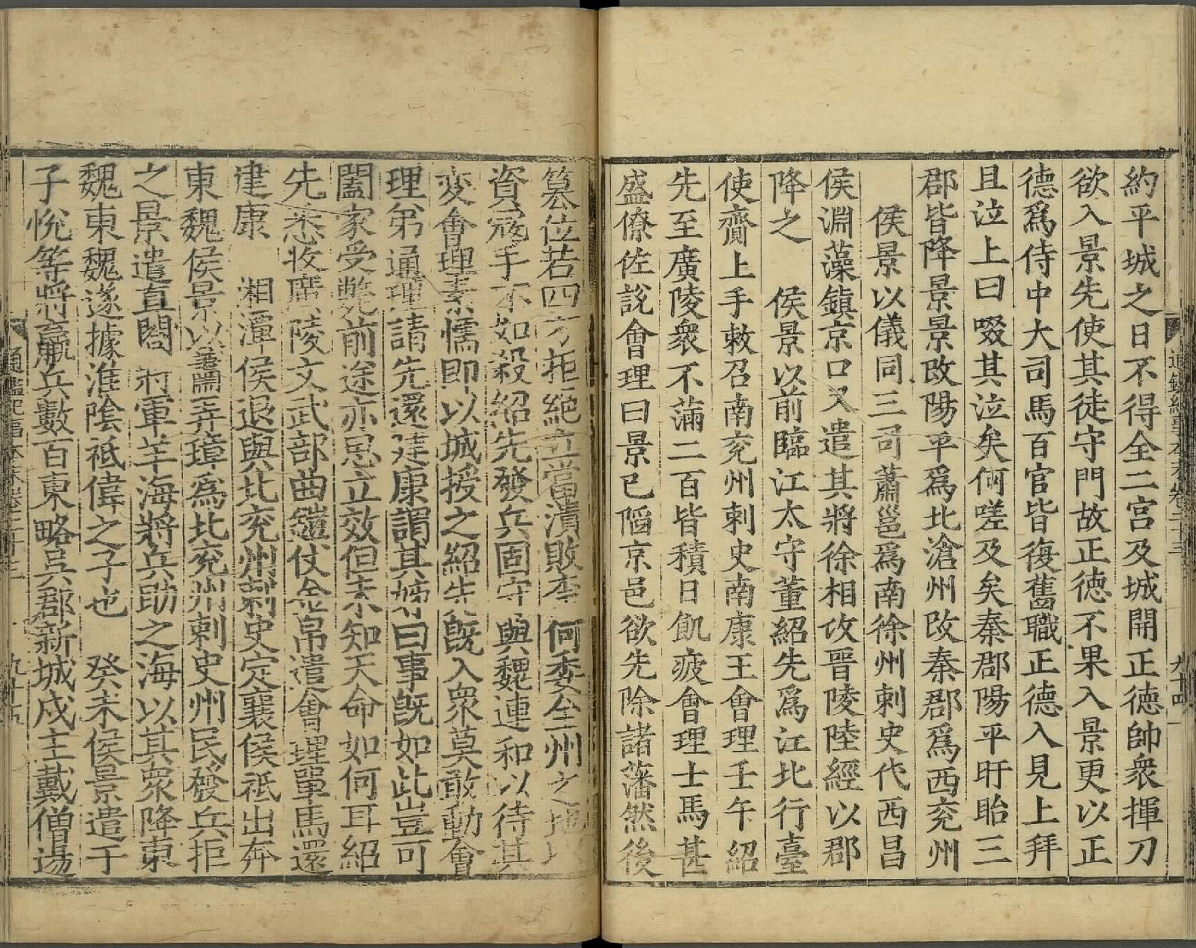 約平城之日不得全二宮及城開正德帥衆揮刀
欲入景先使其徒守門故正德不果入景更以正
德爲侍中大司馬百官皆復舊職正德入見上拜
且泣上曰啜其泣矣何嗟及矣秦郡陽平盱眙三
郡皆降景景改陽平爲北滄州改秦郡爲西兖州
侯景以儀同三司蕭邕爲南徐州刺史代西昌
侯淵藻鎮京口又遣其將徐相攻晉陵陸經以郡
降之　侯景以前臨江太守董紹先爲江北行臺
使齎上手敕召南兖州刺史南康王會理壬午紹
先至廣陵衆不滿二百皆積日飢疲會理士馬甚
盛僚佐說會理曰景已䧟京邑欲先除諸藩然後
簒位若四方拒絕立當潰敗柰何委全州之地以
資寇手不如殺紹先發兵固守與魏連和以待其
變會理素懦即以城授之紹先旣入衆莫敢動會
理弟通理請先還建康謂其姊曰事旣如此豈可
闔家受斃前途亦思立效但未知天命如何耳紹
先悉收廣陵文武部曲鎧仗金帛遣會理單馬還
建康　湘潭侯退與北兖州刺史定襄侯祗出奔
東魏侯景以蕭弄璋爲北兖州刺史州民發兵拒
之景遣直閤將軍羊海將兵助之海以其衆降東
魏東魏遂據淮陰祗偉之子也　癸未侯景遣于
子悅等將羸兵數百東略吳郡新城戍主戴僧逷
九十四
九十五